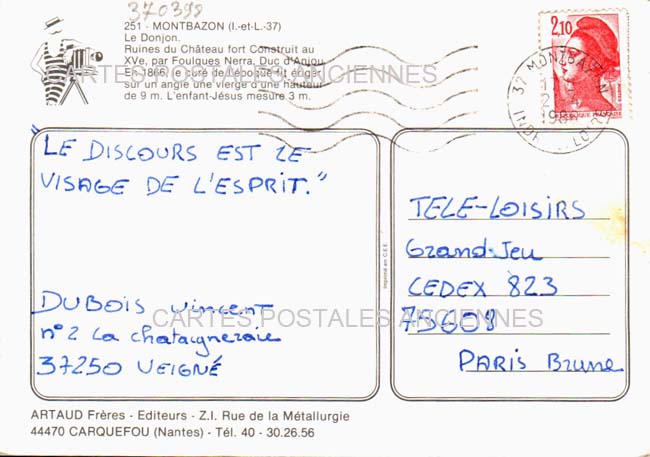 370398
251 - MONTBAZON (I.-et-L.-37)
Le Donjon.
Ruines du Château fort Construit au
XVe, par Foulques Nerra, Duc d'Anjou
En 1866, le curé de l'époque fit ériger
sur un angle une vierge d'une hauteur
de 9 m. L'enfant-Jésus mesure 3 m.
CARTES POSTALES ANCIENNES
2,10
37 MONTBAZON
"LE DISCOURS EST LE
VISAGE DE L'ESPRIT."
DUBOIS Vincent
n°2 La chataigneraie
37250 VEIGNÉ
Imprimé en C.E.E.
TELE-LOISIRS
Grand Jeu
CEDEX 823
75608
PARIS Brune
CARTES POSTALES ANCIENNES
ARTAUD Frères - Editeurs - Z.I. Rue de la Métallurgie
44470 CARQUEFOU (Nantes) - Tél. 40 - 30.26.56